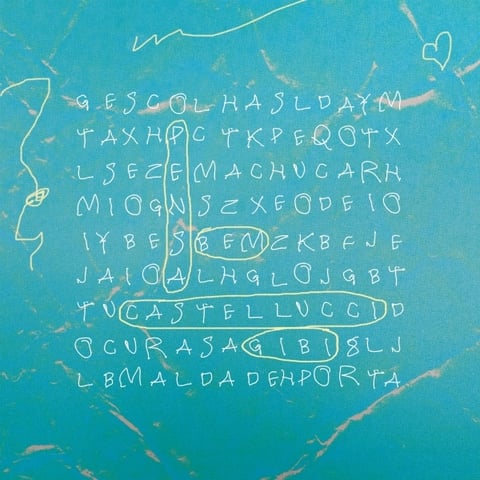 GESCOLHASLDAYM
TAXHPCTKPEQOTX
LSEZEMACHUCARH
MIOGNSZXEODEIO
IYBESBEMZKBFJE
JAIOALHGLOJGBT
TUCASTELLUCCID
OCURASAGIBI8LJ
LBMALDADEHPORTA